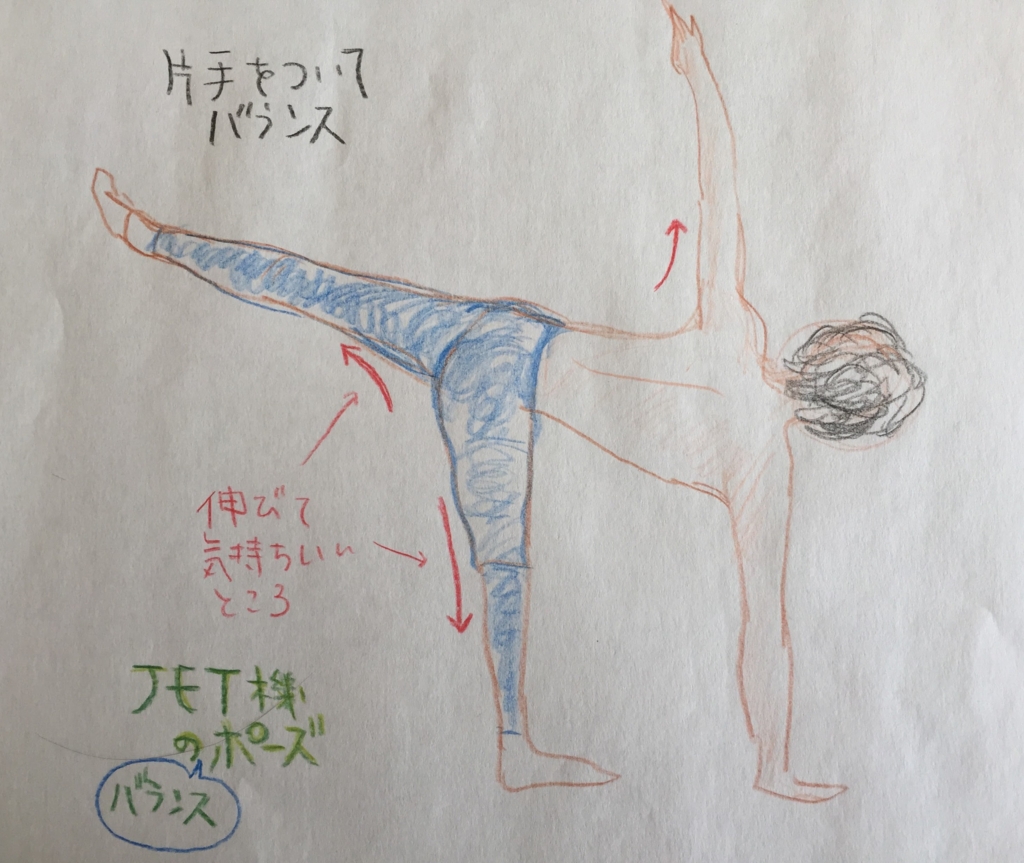 片手をついて
バランス
伸びて
気持ちいい
ところ
JET機
のポーズ
バランス